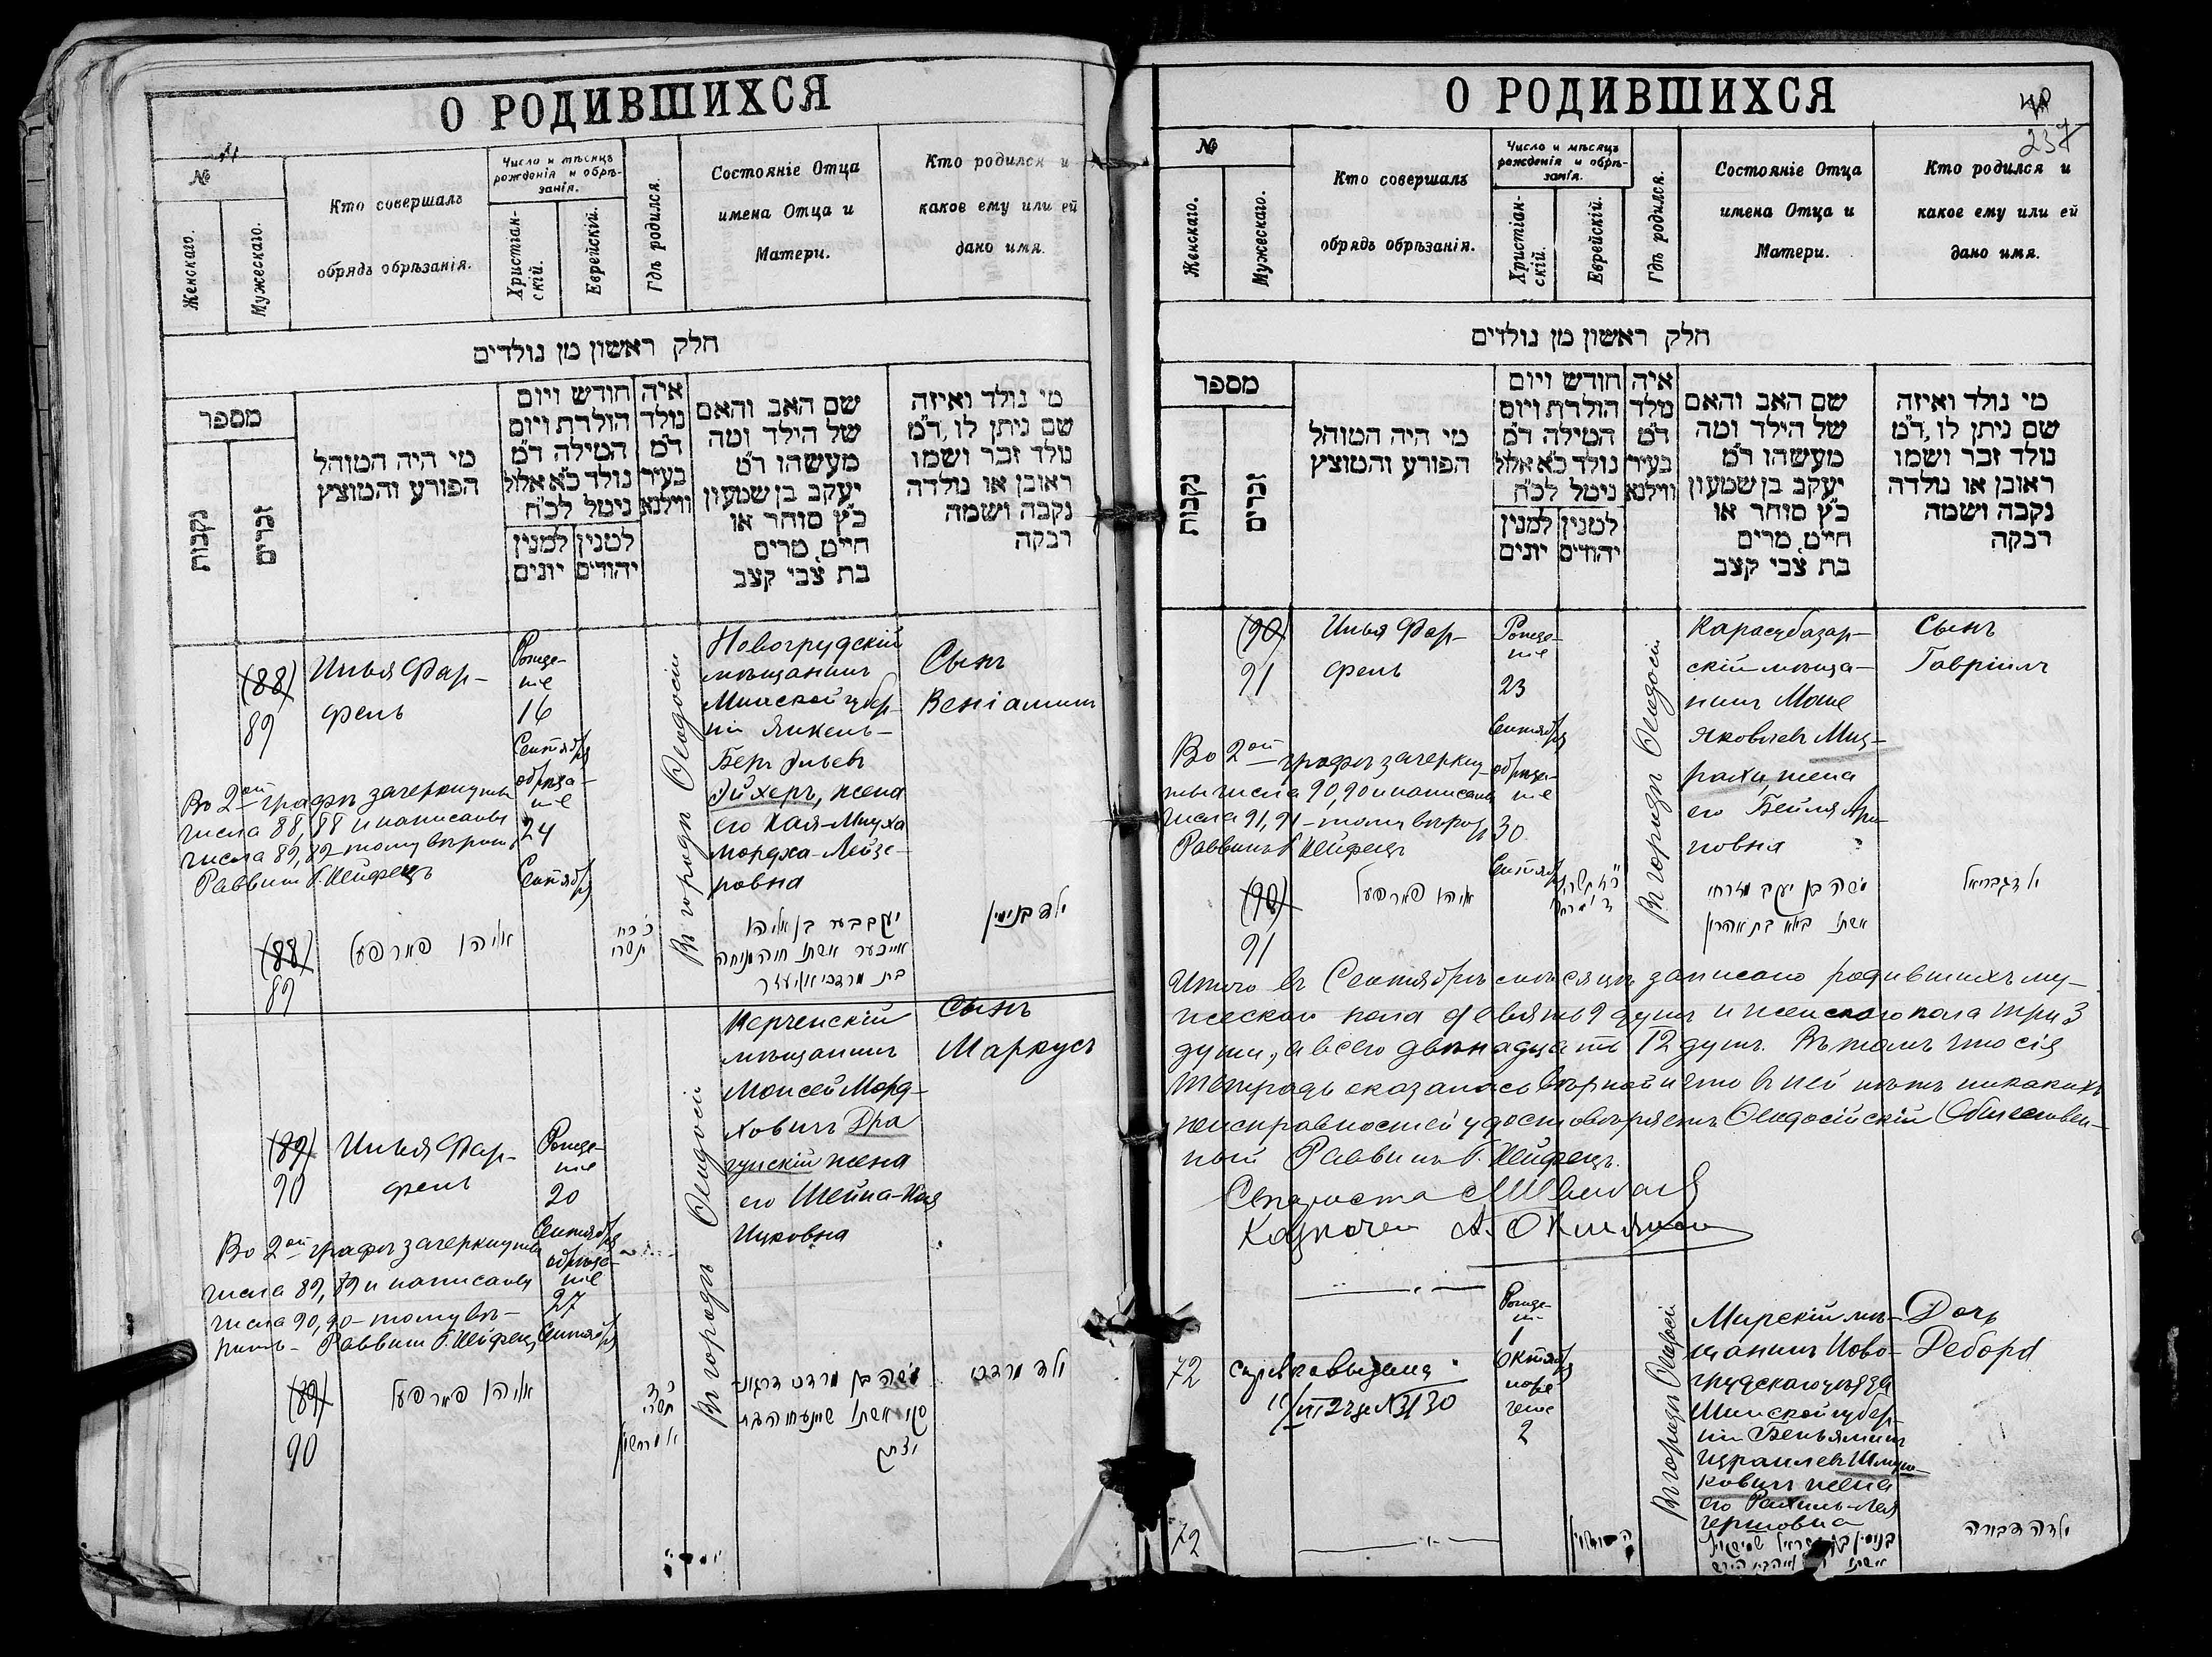 О РОДИВШИХСЯ
№
Женскаго.
Мужескаго.
Кто совершалъ
обрядъ обрѣзанія.
Число и мѣсяцъ
рожденія и обрѣ-
занія.
Христіан-
скій.
Еврейскій.
Гдѣ родился.
Состояніе Отца
имена Отца и
Матери.
Кто родился и
какое ему или ей
дано имя.
חלק ראשון מן נולדים
מספר
נקבות
זכרים
מי היה המוהל
הפורע והמוצץ
חודש ויום
הולדת ויום
המילה ד״מ
נולד כ״א אלול
ניטל לכ״ח
למנין יונים
למנין יהודים
איה
נולד
ד״מ
בעיר
ווילנא
שם האב והאם
של הילד ומה
מעשהו ד״מ
יעקב בן שמעון
כ״ץ סוחר או
חייט, מרים
בת צבי קצב
מי נולד ואיזה
שם ניתן לו, ד״מ
נולד זכר ושמו
ראובן או נולדה
נקבה ושמה
רבקה
(88)
89
Илья Фар-
фель
Рожде-
ніе
16
Сентября
обрѣза-
ніе
24
Сентября
Въ городѣ Ѳеодосіи
Новогрудскій
мѣщанинъ
Минской губер-
ніи Янкель-
Беръ Эльевъ
Эйхеръ, жена
его Хая-Мнуха
Мордха-Лейзе-
ровна
Сынъ
Веніаминъ
Во 2ой графѣ зачеркнуты
числа 88, 88 и написаны
числа 89, 89 - тому вѣрить
Раввинъ Г. Хейфецъ
(88)
89
אליהו פארפעל
תשרי
יעקב בער בן אליהו
אייכער אשתו חיה מנוחה
בת מרדכי אליעזר
ילד בנימין
(89)
90
Илья Фар-
фель
Рожде-
ніе
20
Сентября
обрѣза-
ніе
27
Сентября
Въ городѣ Ѳеодосіи
Керченскій
мѣщанинъ
Моисей Морд-
ховичъ Дра
гунскій жена
его Шейна-Хая
Ицковна
Сынъ
Маркусъ
Во 2ой графѣ зачеркнуты
числа 89, 89 и написаны
числа 90, 90 - тому вѣ-
рить - Раввинъ Г. Хейфецъ
(89)
90
אליהו פארפעל
תשרי
משה בן מרדכי דראגונ-
סקי אשתו שיינע חיה בת
יצחק
ילד מרדכי
О РОДИВШИХСЯ
237
№
Женскаго.
Мужескаго.
Кто совершалъ
обрядъ обрѣзанія.
Число и мѣсяцъ
рожденія и обрѣ-
занія.
Христіан-
скій.
Еврейскій.
Гдѣ родился.
Состояніе Отца
имена Отца и
Матери.
Кто родился и
какое ему или ей
дано имя.
חלק ראשון מן נולדים
מספר
נקבות
זכרים
מי היה המוהל
הפורע והמוצץ
חודש ויום
הולדת ויום
המילה ד״מ
נולד כ״א אלול
ניטל לכ״ח
למנין יונים
למנין יהודים
איה
נולד
ד״מ
בעיר
ווילנא
שם האב והאם
של הילד ומה
מעשהו ד״מ
יעקב בן שמעון
כ״ץ סוחר או
חייט, מרים
בת צבי קצב
מי נולד ואיזה
שם ניתן לו, ד״מ
נולד זכר ושמו
ראובן או נולדה
נקבה ושמה
רבקה
(90)
91
Илья Фар-
фель
Рожде-
ніе
23
Сентября
обрѣза-
ніе
30
Сентября
Въ городѣ Ѳеодосіи
Карасубазар-
скій мѣща-
нинъ Моше
Яковлевъ Миз-
рахи, жена
его Бейля Аро-
новна
Сынъ
Гавріилъ
Во 2ой графѣ зачеркну-
ты числа 90, 90 и написаны
числа 91, 91 - тому вѣрить
Раввинъ Г. Хейфецъ
(90)
91
אליהו פארפעל
משה בן יעקב מזרחי
אשתו בילא בת אהרון
ילד גבריאל
Итого въ Сентябрѣ мѣсяцѣ записано родившихъ му-
жескаго пола девять 9 душъ и женскаго пола три 3
души, а всего двѣнадцать 12 душъ. Въ томъ что сія
тетрадь оказалась вѣрной и что въ ней нѣтъ никакихъ
неисправностей удостовѣряетъ Ѳеодосійскій Обществен-
ный Раввинъ Г. Хейфецъ.
Староста
Казначей
72
справка выдана
Рожде-
ніе
1
Октября
наре-
ченіе
2
Въ городѣ Ѳеодосіи
Мирскій мѣ-
щанинъ Ново-
грудскаго уѣзда
Минской губер-
ніи Беньяминъ
Израилевъ Шмуш-
ковичъ жена
его Рахиль-Лея
Гершовна
Дочь
Дебора
72
ילדה דבורה